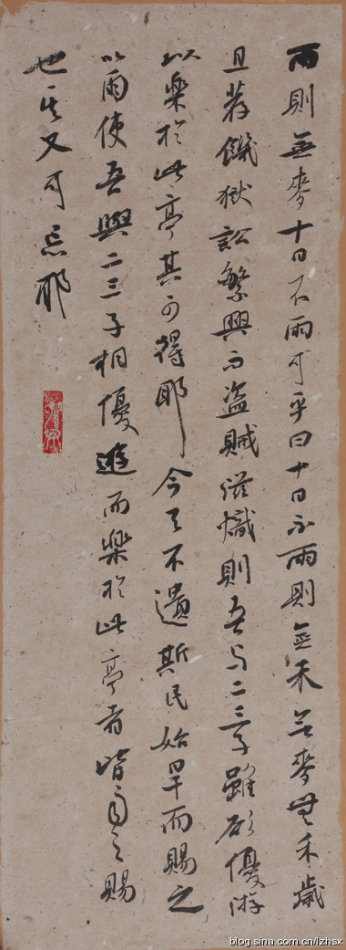 雨則無麥十日不雨可乎曰十日不雨則無禾无麥無禾歲
且荐饑獄訟繁興而盜賊滋熾則吾与二三子雖欲優游
以樂於此亭其可得耶今天不遺斯民始旱而賜之
以雨使吾與二三子相優遊而樂於此亭者皆雨之賜
也其又可忘耶
blog.sina.com.cn/lzhsx